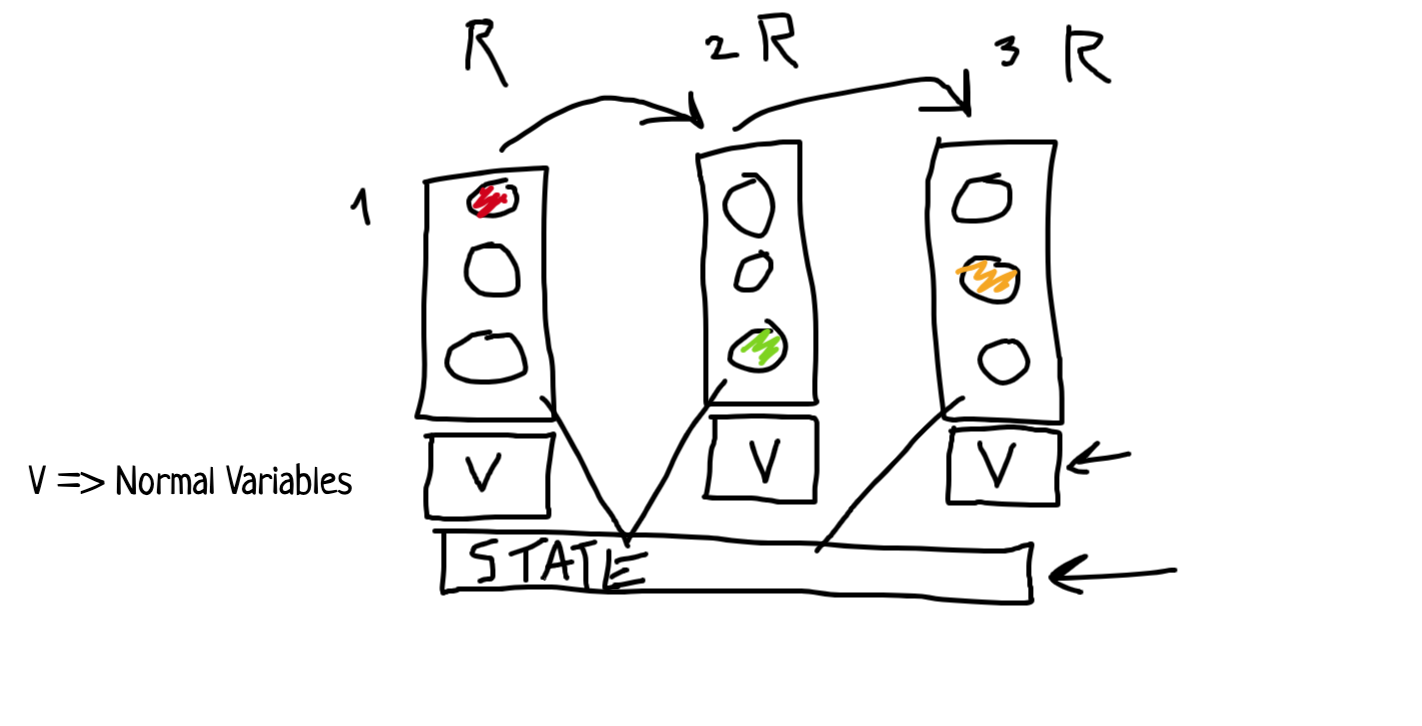 R
2 R
3 R
1
V => Normal Variables
V
V
V
STATE